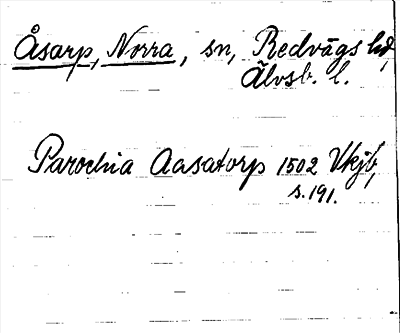 Åsarp, Norra, sn, Redvägs hd,
Älvsb. l.
Parochia Aasatorp 1502 Vkjb,
s. 191.